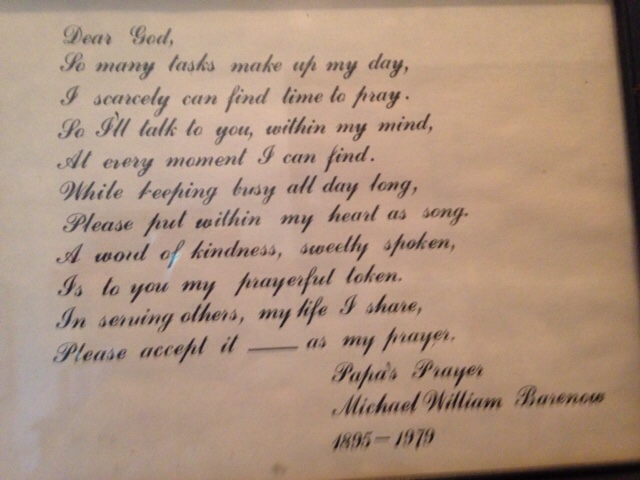 Dear God,
So many tasks make up my day,
I scarcely can find time to pray.
So I'll talk to you, within my mind,
At every moment I can find.
While keeping busy all day long,
Please put within my heart as song.
A word of kindness, sweetly spoken,
Is to you my prayerful token.
In serving others, my life I share,
Please accept it —— as my prayer.
Papa's Prayer
Michael William Barenow
1895–1979